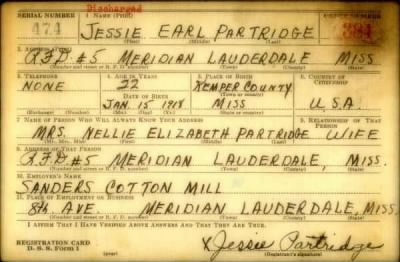 Discharged
SERIAL NUMBER 1. NAME (Print)
474 JESSIE EARL PARTRIDGE 381
(First) (Middle) (Last)
2. ADDRESS (Print)
R.F.D. #5 MERIDIAN LAUDERDALE MISS
(Number and street or R. F. D. number) (Town) (County) (State)
3. TELEPHONE 4. AGE IN YEARS 5. PLACE OF BIRTH 6. COUNTRY OF CITIZENSHIP
NONE 22 KEMPER COUNTY
DATE OF BIRTH (Town or county)
JAN. 15 1918 MISS U.S.A.
(Exchange) (Number) (Mo.) (Day) (Yr.) (State or country)
7. NAME OF PERSON WHO WILL ALWAYS KNOW YOUR ADDRESS 8. RELATIONSHIP OF THAT PERSON
MRS. NELLIE ELIZABETH PARTRIDGE WIFE
(Mr., Mrs., Miss) (First) (Middle) (Last)
9. ADDRESS OF THAT PERSON
R.F.D #5 MERIDIAN LAUDERDALE, MISS.
(Number and street or R. F. D. number) (Town) (County) (State)
10. EMPLOYER'S NAME
SANDERS COTTON MILL
11. PLACE OF EMPLOYMENT OR BUSINESS
8th AVE. MERIDIAN LAUDERDALE, MISS.
(Number and street or R. F. D. number) (Town) (County) (State)
I AFFIRM THAT I HAVE VERIFIED ABOVE ANSWERS AND THAT THEY ARE TRUE.
REGISTRATION CARD
D. S. S. Form 1 X Jessie Partridge
(Registrant's signature)